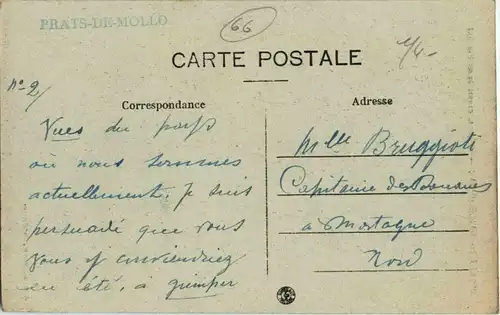 PRATS-DE-MOLLO
66
CARTE POSTALE
n° 2
Correspondance
Adresse
Vues du pays
où nous sommes
actuellement. je suis
persuadé que vous
vous y conviendriez
en été, à grimper
Mlle Bruggioti
Capitaine des Douanes
à Mortagne
Nord